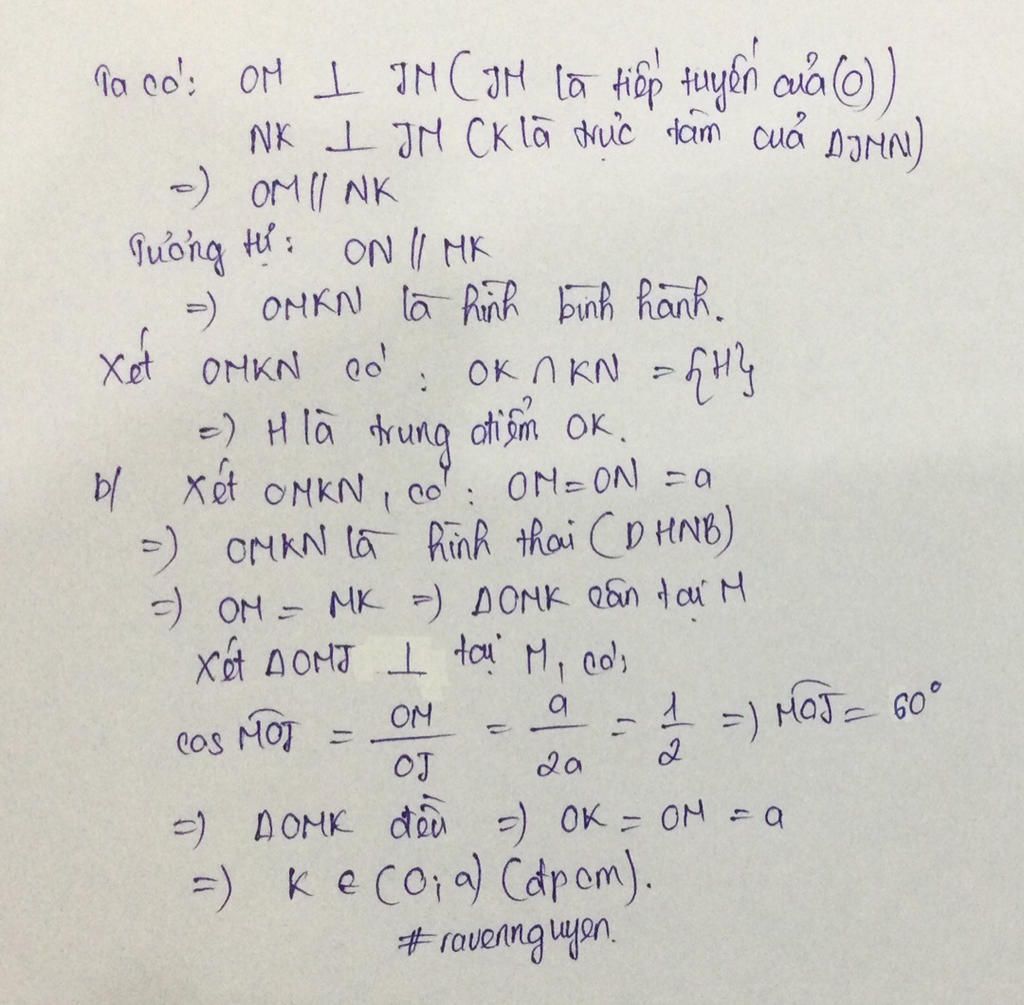 Ta có: OM ⊥ JM (JM là tiếp tuyến của (O))
NK ⊥ JM (K là trực tâm của ΔJMN)
=) OM // NK
Tương tự: ON // MK
=) OMKN là hình bình hành.
Xét OMKN có: OK ∩ KN = {H}
=) H là trung điểm OK.
b/ Xét OMKN, có: OM = ON = a
=) OMKN là hình thoi (DHNB)
=) OM = MK =) ΔOMK cân tại M
Xét ΔOMJ ⊥ tại M, có:
cos MOJ = OM/OJ = a/2a = 1/2 =) MOJ = 60°
=) ΔOMK đều =) OK = OM = a
=) K ∈ (O; a) (đpcm).
#ravennguyen.